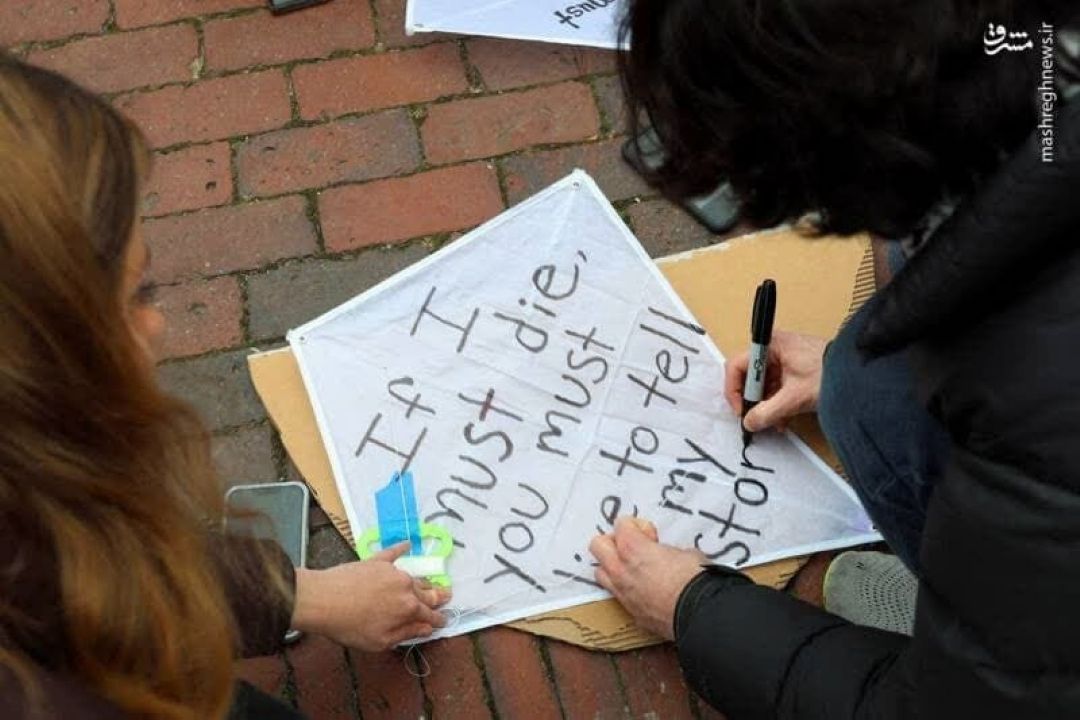 must
مشرق
mashreghnews.ir
If I
must die,
you must
live to tell
my
stor